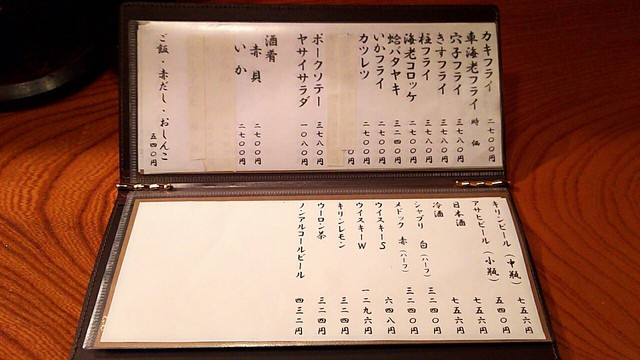 カキフライ 二七〇〇円
車海老フライ 時価
穴子フライ 三七八〇円
きすフライ 三七八〇円
柱フライ 三七八〇円
海老コロッケ 二七〇〇円
蛤バタヤキ 三二四〇円
いかフライ 二七〇〇円
カツレツ 二七〇〇円
ポークソテー 三七八〇円
ヤサイサラダ 一〇八〇円
酒肴
赤貝 二七〇〇円
いか 二七〇〇円
ご飯・赤だし・おしんこ 五四〇円
キリンビール(中瓶) 七五六円
アサヒビール(小瓶) 五四〇円
日本酒 七五六円
冷酒 七五六円
シャブリ 白(ハーフ) 三二四〇円
メドック 赤(ハーフ) 三二四〇円
ウイスキーS 六四八円
ウイスキーW 一二九六円
キリンレモン 三二四円
ウーロン茶 三二四円
ノンアルコールビール 四三二円